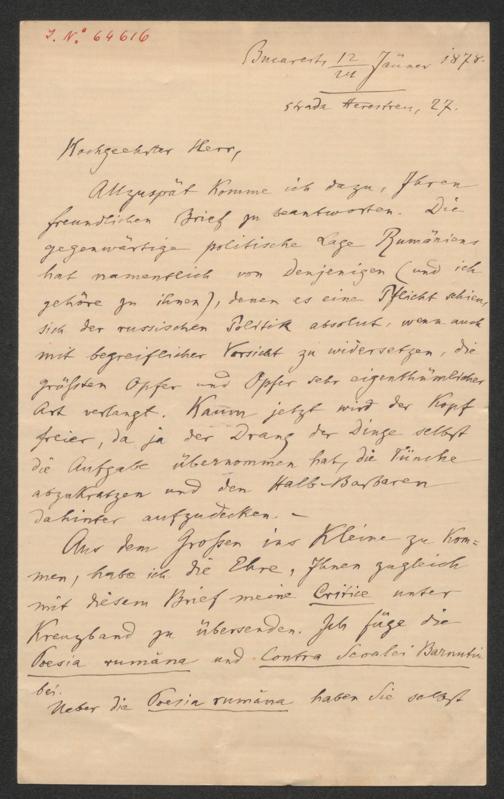 I. N.º 64616
Bucarest, 12/24 Jänner 1878.
strada Herestreu, 27.
Hochgeehrter Herr,
Allzuspät komme ich dazu, Ihren
freundlichen Brief zu beantworten. Die
gegenwärtige politische Lage Rumäniens
hat namentlich von denjenigen (und ich
gehöre zu ihnen), denen es eine Pflicht schien,
sich der russischen Politik absolut, wenn auch
mit begreiflicher Vorsicht zu widersetzen, die
größten Opfer und Opfer sehr eigenthümlicher
Art verlangt. Kaum jetzt wird der Kopf
freier, da ja der Drang der Dinge selbst
die Aufgabe übernommen hat, die Tünche
abzukratzen und den Halb-Barbaren
dahinter aufzudecken. –
Aus dem Großen ins Kleine zu kom=
men, habe ich die Ehre, Ihnen zugleich
mit diesem Brief meine Critice unter
Kreuzband zu übersenden. Ich füge die
Poesia rumăna und Contra Scoalei Barnutiu
bei.
Ueber die Poesia rumăna haben Sie selbst